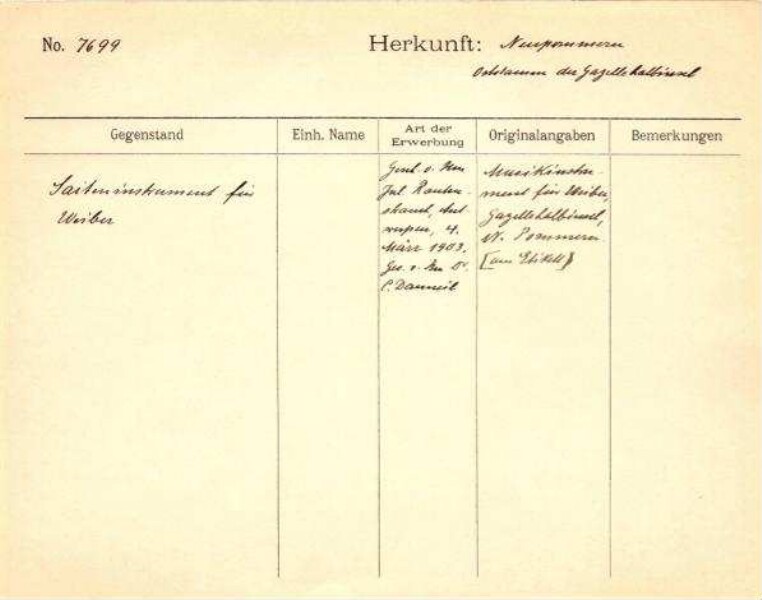 No. 7699
Herkunft: Neupommern
der Gazellehalbinsel
Gegenstand
Einh. Name
Art der
Erwerbung
Originalangaben
Bemerkungen
Saiteninstrument für
Weiber
Gesch. v. Hrn
Jul. Rauten-
strauch, Ant-
werpen, 4.
März 1903.
Ges. v. Hrn Dr.
C. Danneil
Musikinstru-
ment für Weiber,
Gazellehalbinsel,
N. Pommern
[am Etikett]